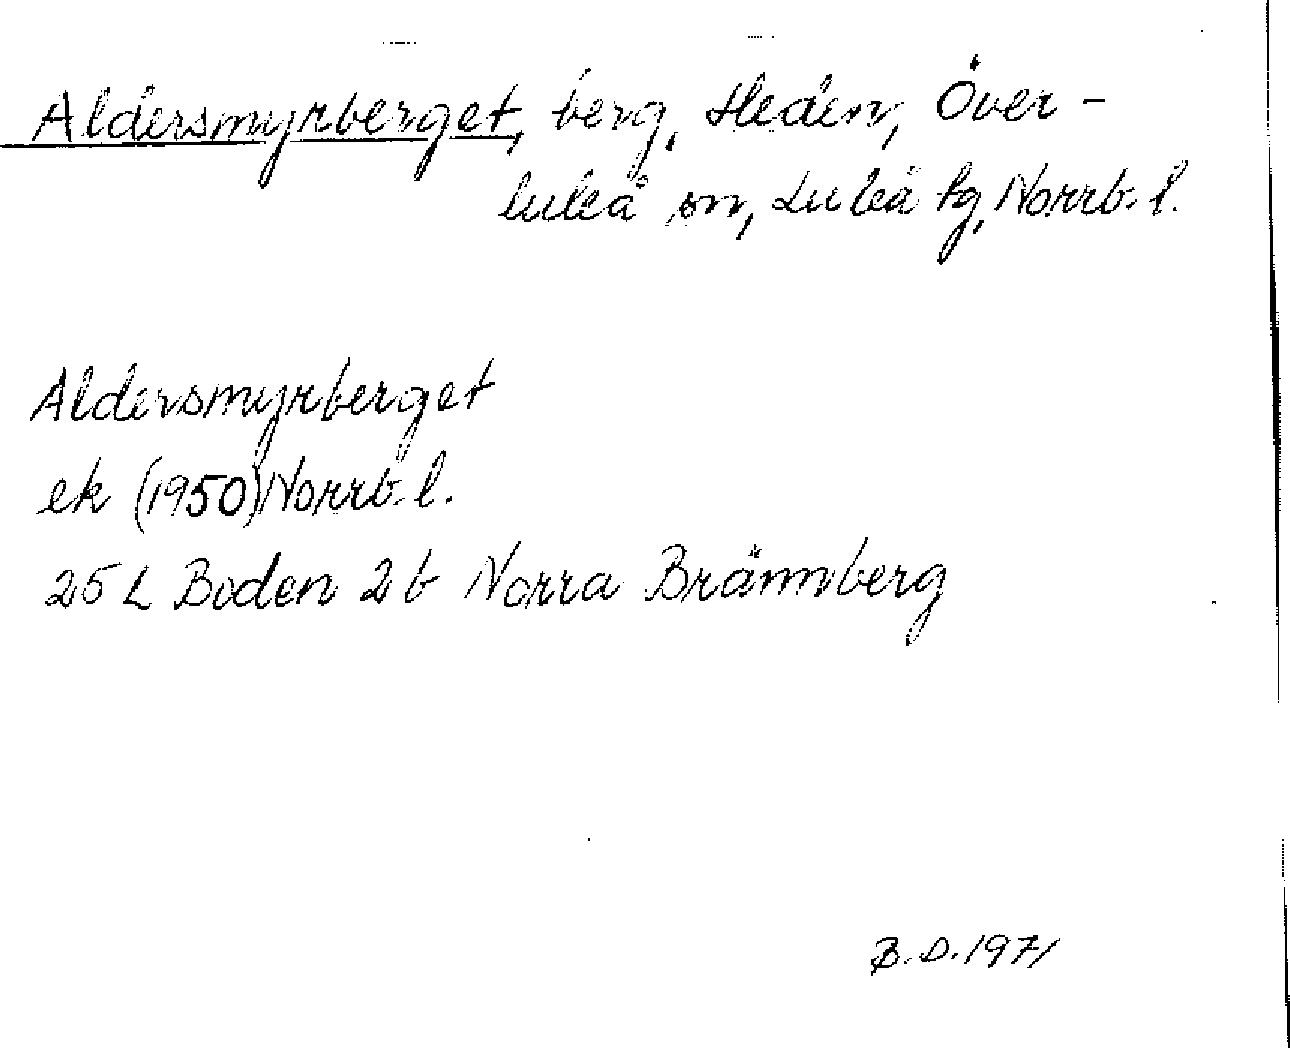 Aldersmyrberget, berg, Heden, Över-
luleå sn, Luleå tg, Norrb. l.
Aldersmyrberget
ek (1950) Norrb. l.
25 L Boden 2 b Norra Brännberg
B.D. 1971